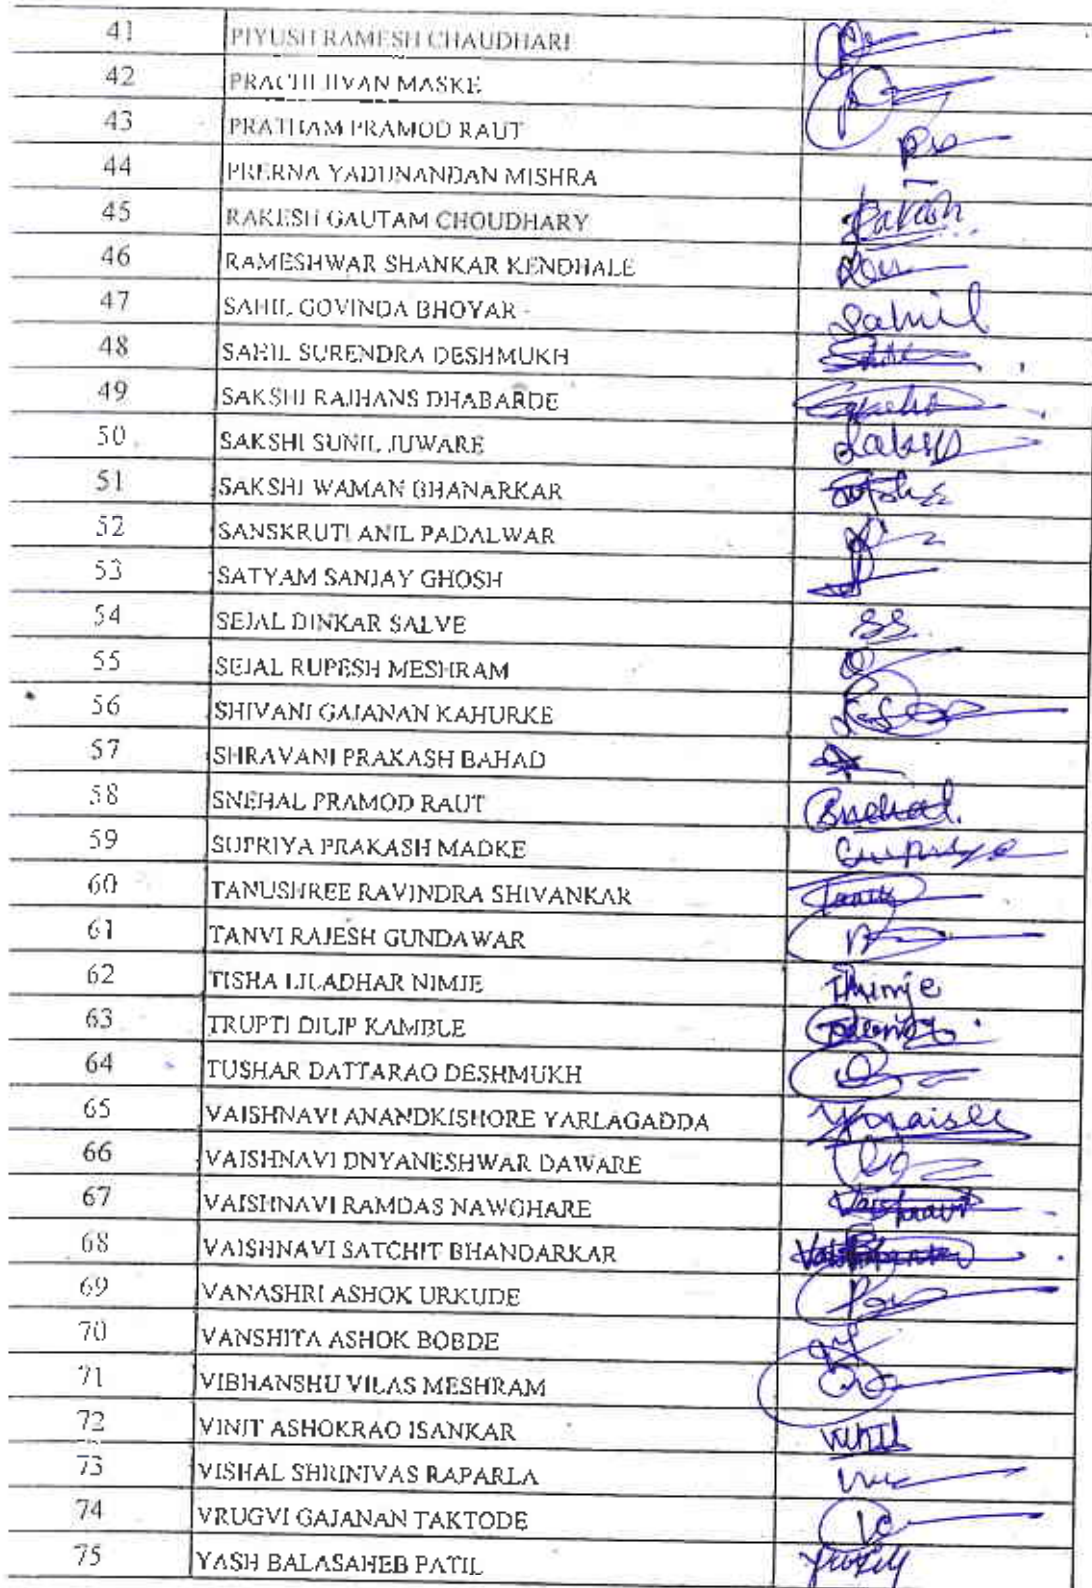 41 PIYUSH RAMESH CHAUDHARI
42 PRACHI JIVAN MASKE
43 PRATHAM PRAMOD RAUT
44 PRERNA YADUNANDAN MISHRA
45 RAKESH GAUTAM CHOUDHARY Rakesh
46 RAMESHWAR SHANKAR KENDHALE
47 SAHIL GOVINDA BHOYAR Sahil
48 SAHIL SURENDRA DESHMUKH
49 SAKSHI RAJHANS DHABARDE
50 SAKSHI SUNIL JUWARE
51 SAKSHI WAMAN BHANARKAR
52 SANSKRUTI ANIL PADALWAR
53 SATYAM SANJAY GHOSH
54 SEJAL DINKAR SALVE SS
55 SEJAL RUPESH MESHRAM
56 SHIVANI GAJANAN KAHURKE
57 SHRAVANI PRAKASH BAHAD
58 SNEHAL PRAMOD RAUT Snehal
59 SUPRIYA PRAKASH MADKE
60 TANUSHREE RAVINDRA SHIVANKAR
61 TANVI RAJESH GUNDAWAR
62 TISHA LILADHAR NIMJE
63 TRUPTI DILIP KAMBLE
64 TUSHAR DATTARAO DESHMUKH
65 VAISHNAVI ANANDKISHORE YARLAGADDA
66 VAISHNAVI DNYANESHWAR DAWARE
67 VAISHNAVI RAMDAS NAWGHARE Vaishnavi
68 VAISHNAVI SATCHIT BHANDARKAR
69 VANASHRI ASHOK URKUDE
70 VANSHITA ASHOK BOBDE
71 VIBHANSHU VILAS MESHRAM
72 VINIT ASHOKRAO ISANKAR
73 VISHAL SHRINIVAS RAPARLA
74 VRUGVI GAJANAN TAKTODE
75 YASH BALASAHEB PATIL